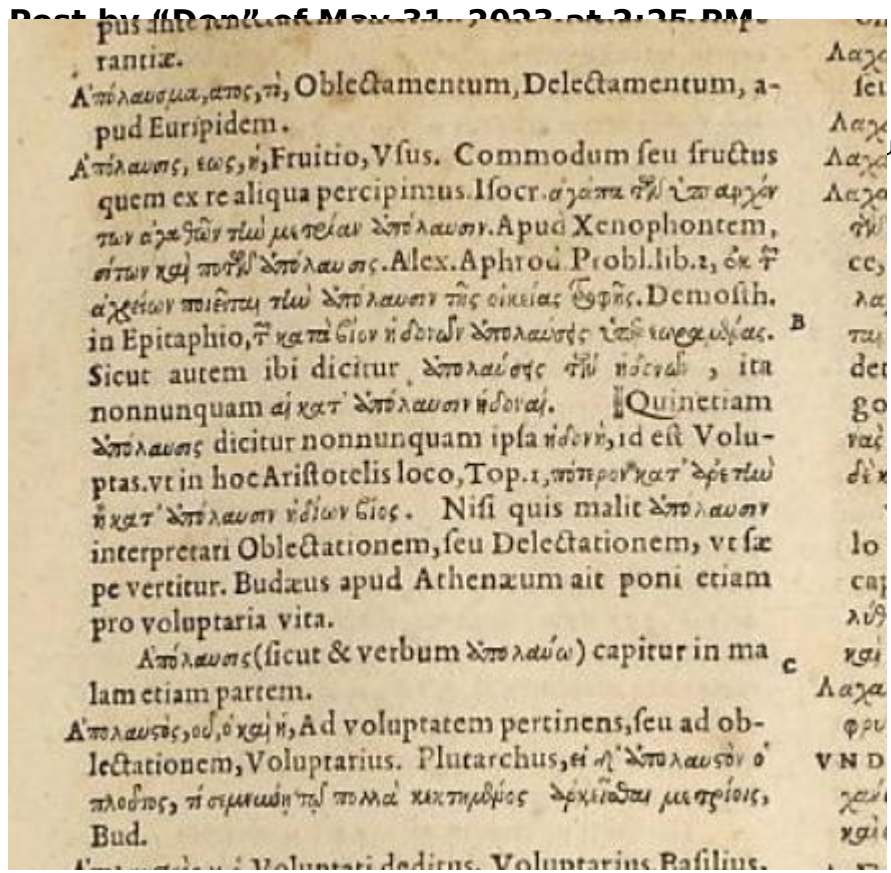 Post by “Don” of May 31, 2023 at 2:25 PM
rantiæ.
Ἀπόλαυσμα, ατος, τὸ, Oblectamentum, Delectamentum, a-
pud Euripidem.
Ἀπόλαυσις, εως, ἡ, Fruitio, Vſus. Commodum ſeu fructus
quem ex re aliqua percipimus. Iſocr. ἀγάπα τῶν ὑπαρχόν
των ἀγαθῶν τὴν μετρίαν ἀπόλαυσιν. Apud Xenophontem,
σίτων καὶ ποτῶν ἀπόλαυσις. Alex. Aphrod. Probl. lib. 2, ἐκ τ
ποιεῖται τὴν ἀπόλαυσιν τῆς οἰκείας τροφῆς. Demoſth.
in Epitaphio, κατὰ βίον ἡδονῶν ἀπολαύσεις B
Sicut autem ibi dicitur ἀπολαύσεις τῶν ἡδονῶν, ita
nonnunquam αἱ κατ' ἀπόλαυσιν ἡδοναί. Quinetiam
ἀπόλαυσις dicitur nonnunquam ipſa ἡδονὴ, id eſt Volu-
ptas. vt in hoc Ariſtotelis loco, Top. 1, πότερον κατ' ἀρετὴν
ἢ κατ' ἀπόλαυσιν ἡδίων βίος. Niſi quis malit ἀπόλαυσιν
interpretari Oblectationem, ſeu Delectationem, vt ſæ
pe vertitur. Budæus apud Athenæum ait poni etiam
pro voluptaria vita.
Ἀπόλαυσις (ſicut & verbum ἀπολαύω) capitur in ma C
lam etiam partem.
Ἀπολαυστὸς, οῦ, ὁ καὶ ἡ, Ad voluptatem pertinens, ſeu ad ob-
lectationem, Voluptarius. Plutarchus, εἰ δ' ἀπολαυστὸν ὁ
πλοῦτος, τί πολλὰ κεκτημένος ἀρκεῖσθαι μετρίοις,
Bud.
Voluptati deditus, Voluptarius. Baſilius,